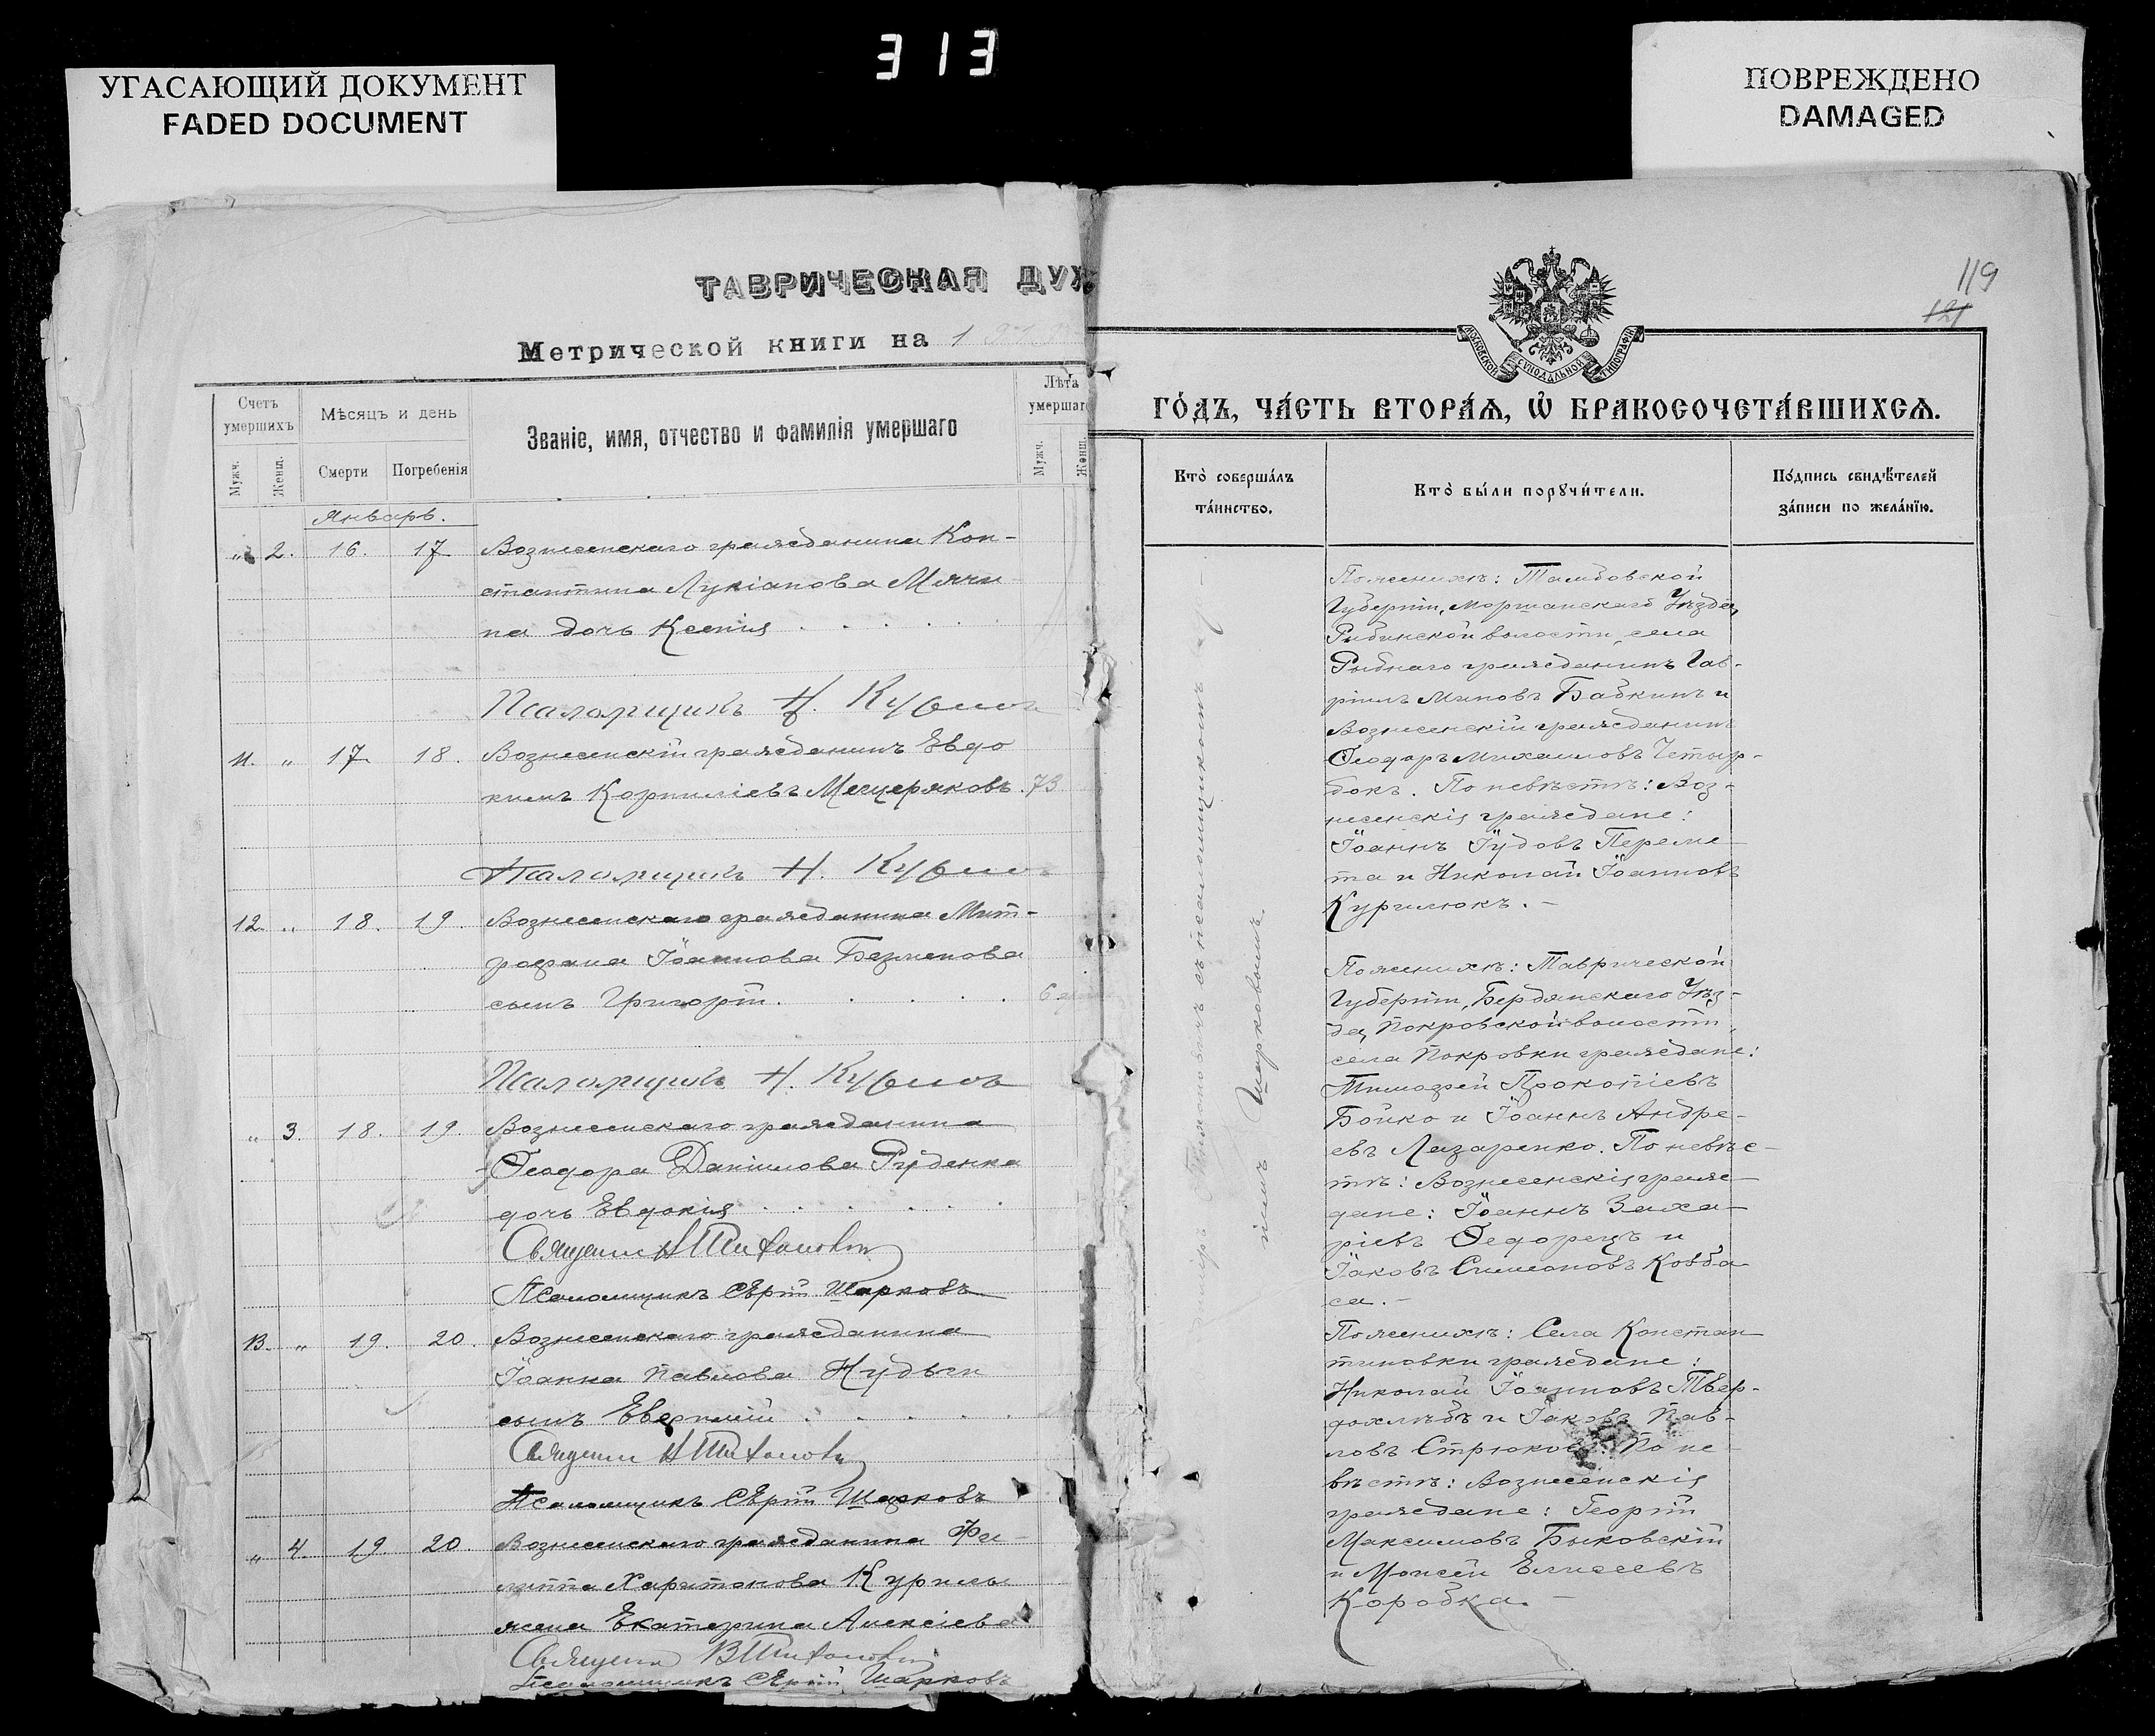 313
УГАСАЮЩИЙ ДОКУМЕНТ
FADED DOCUMENT
ПОВРЕЖДЕНО
DAMAGED
ТАВРИЧЕСКАЯ ДУХ
Метрической книги на 1
Счетъ умершихъ
Мѣсяцъ и день
Званіе, имя, отчество и фамилія умершаго
Лѣта умершаг
Мужч.
Женщ.
Смерти
Погребенія
Мужч.
Женщ
Январь.
" 2. 16. 17 Вознесенскаго гражданина Кон-
стантина Лукіанова Мячи
на дочь Ксенія
Псаломщикъ Н.
11. " 17 18. Вознесенскій гражданинъ Евдо
кимъ Корниліевъ Мещеряковъ. 73
Псаломщикъ Н.
12 " 18. 19. Вознесенскаго гражданина Мит-
рофана Іоаннова Безменова
сынъ Григорій. 6
Псаломщикъ Н.
" 3. 18. 19. Вознесенскаго гражданина
Ѳеодора Даніилова Руденка
дочь Евдокія
Священникъ
Псаломщикъ Шарковъ
13. " 19. 20. Вознесенскаго гражданина
Іоанна Павлова Нудьги
сынъ
Священникъ
Псаломщикъ Шарковъ
" 4. 19. 20. Вознесенскаго гражданина Фи-
липпа Харитонова Курилы
жена Екатерина Алексіева
Священникъ
Псаломщикъ Шарковъ
119
121
МОСКОВСКОЙ СѴНОДАЛЬНОЙ ТИПОГРАФІИ
ГО́ДЪ, ЧА́СТЬ ВТОРА́Ѧ, Ѡ҆ БРАКОСОЧЕТА́ВШИХСѦ.
Кто̀ соверша́лъ
та́инство.
Кто̀ бы́ли порꙋчи́тели.
По́дпись свидѣ́телей
за́писи по жела́нїю.
съ псаломщикомъ
Шарковымъ.
По женихѣ: Тамбовской
Губерніи, Моршанскаго Уѣзда,
Рыбинской волости, села
Рыбнаго гражданинъ Гав-
ріилъ Миновъ Бабкинъ и
Вознесенскій гражданинъ
Ѳеодоръ Михаиловъ Четыр-
бокъ. По невѣстѣ: Воз-
несенскія граждане:
Іоаннъ Іудовъ Переме-
та и Николай Іоанновъ
Курилюкъ. –
По женихѣ: Таврической
Губерніи, Бердянскаго Уѣз-
да, Покровской волости,
села Покровки граждане:
Тимофей Прокопіевъ
Бойко и Іоаннъ Андре-
евъ Лазаренко. По невѣс-
тѣ: Вознесенскія граж-
дане: Іоаннъ Заха-
ріевъ Федорецъ и
Іаковъ Симеоновъ Ковба-
са. –
По женихѣ: Села Констан
тиновки граждане:
Николай Іоанновъ Твер-
дохлѣбъ и Іаковъ Пав-
ловъ Стрюковъ. По не-
вѣстѣ: Вознесенскія
граждане: Георгій
Максимовъ Быковскій
и Моисей Елисеевъ
Коробка. –